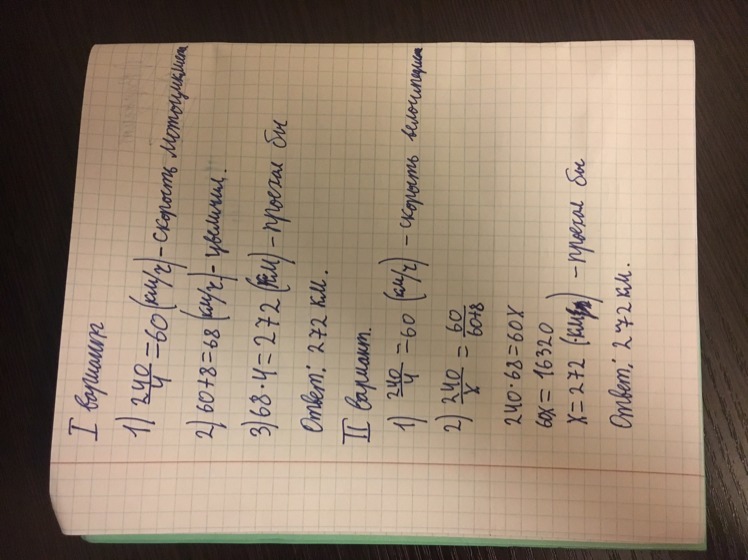 I вариант
1) 240/4 = 60 (км/ч) - скорость мотоциклиста
2) 60+8=68 (км/ч) - увеличил.
3) 68·4=272 (км) - проехал бы
Ответ: 272 км.
II вариант.
1) 240/4 = 60 (км/ч) - скорость велосипедиста
2) 240/x = 60/60+8
240·68=60x
60x=16320
x=272 (км) - проехал бы
Ответ: 272 км.